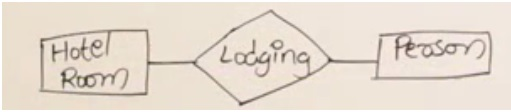 Hotel
Room
Lodging
Person